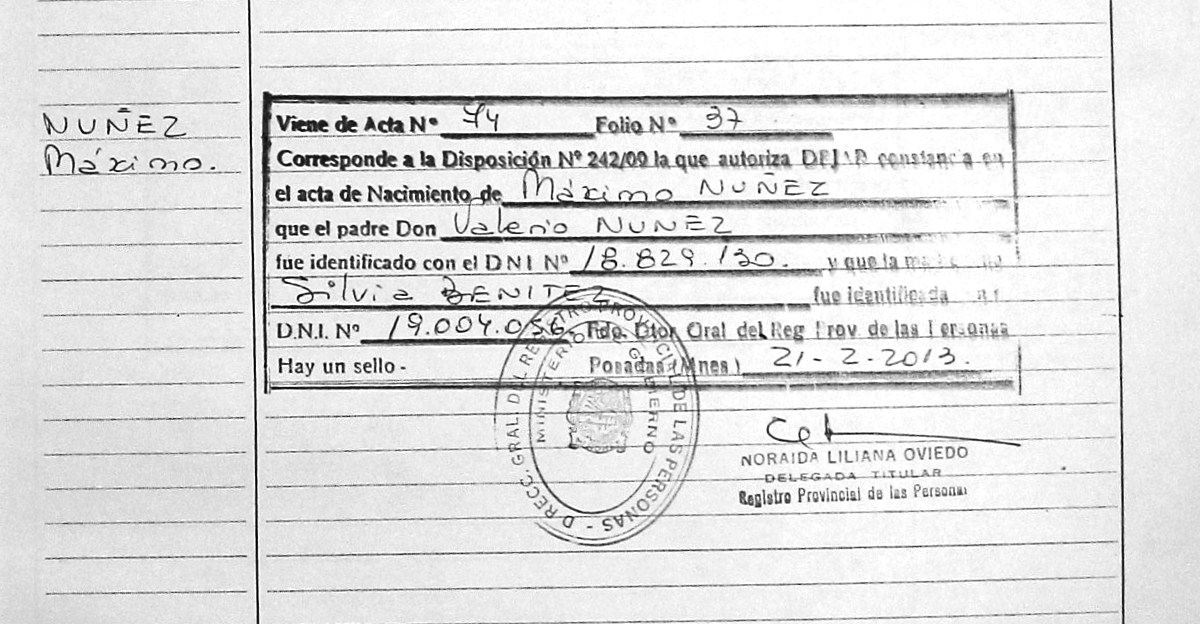 NUÑEZ
Máximo.
Viene de Acta Nº 74 Folio Nº 37
Corresponde a la Disposición Nº 242/09 la que autoriza DEJAR constancia en
el acta de Nacimiento de Máximo NUÑEZ
que el padre Don Valerio NUÑEZ
fue identificado con el DNI Nº 18.829.130. y que la
Silvia BENITEZ fue identificada
D.N.I. Nº 19.004.056. Fdo. Dtor Gral del Reg Prov. de las Personas
Hay un sello - Posadas (Mnes) 21-2-2013.
DIRECC. GRAL. DEL REGISTRO PROVINCIAL DE LAS PERSONAS -
MINISTERIO DE GOBIERNO
NORAIDA LILIANA OVIEDO
DELEGADA TITULAR
Registro Provincial de las Personas